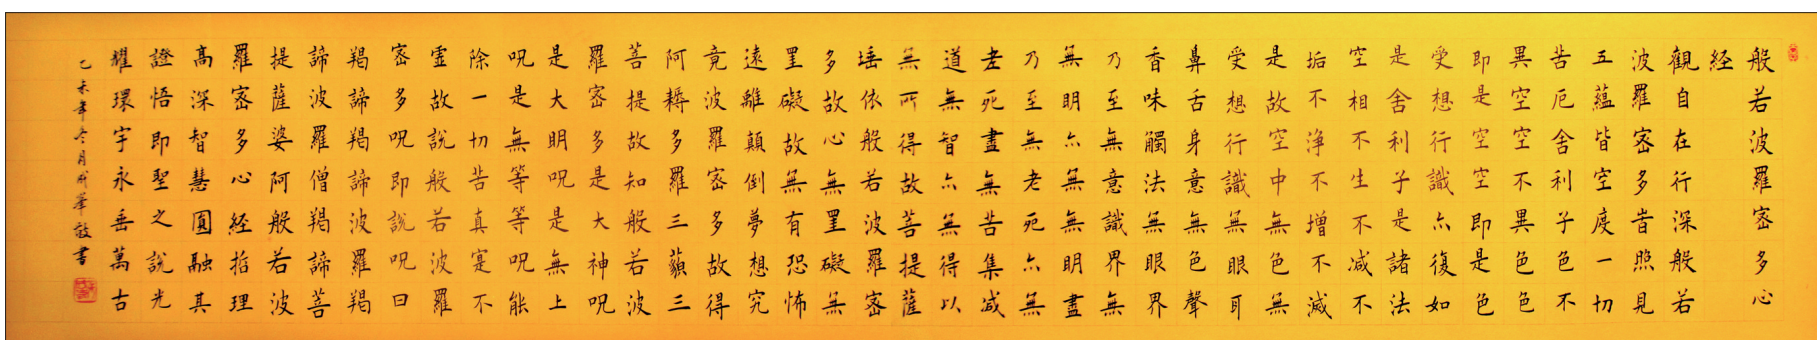 般若波羅密多心
経
觀自在行深般若
波羅密多旹照見
五蘊皆空度一切
苦厄舍利子色不
異空空不異色色
即是空空即是色
受想行識亦復如
是舍利子是諸法
空相不生不减不
垢不淨不增不滅
是故空中無色無
受想行識無眼耳
鼻舌身意無色聲
香味觸法無眼界
乃至無意識界無
無明亦無無明盡
乃至無老死亦無
老死盡無苦集减
道無智亦無得以
無所得故菩提薩
埵依般若波羅密
多故心無罣礙無
罣礙故無有恐怖
遠離顛倒夢想究
竟波羅密多故得
阿耨多羅三藐三
菩提故知般若波
羅密多是大神呪
是大明呪是無上
呪是無等等呪能
除一切苦真寔不
霊故說般若波羅
密多呪即說呪曰
羯諦羯諦波羅羯
諦波羅僧羯諦菩
提薩婆阿般若波
羅密多心経括理
高深智慧圓融其
證悟即聖之說光
耀環宇永垂萬古
乙未年冬月成華敬書